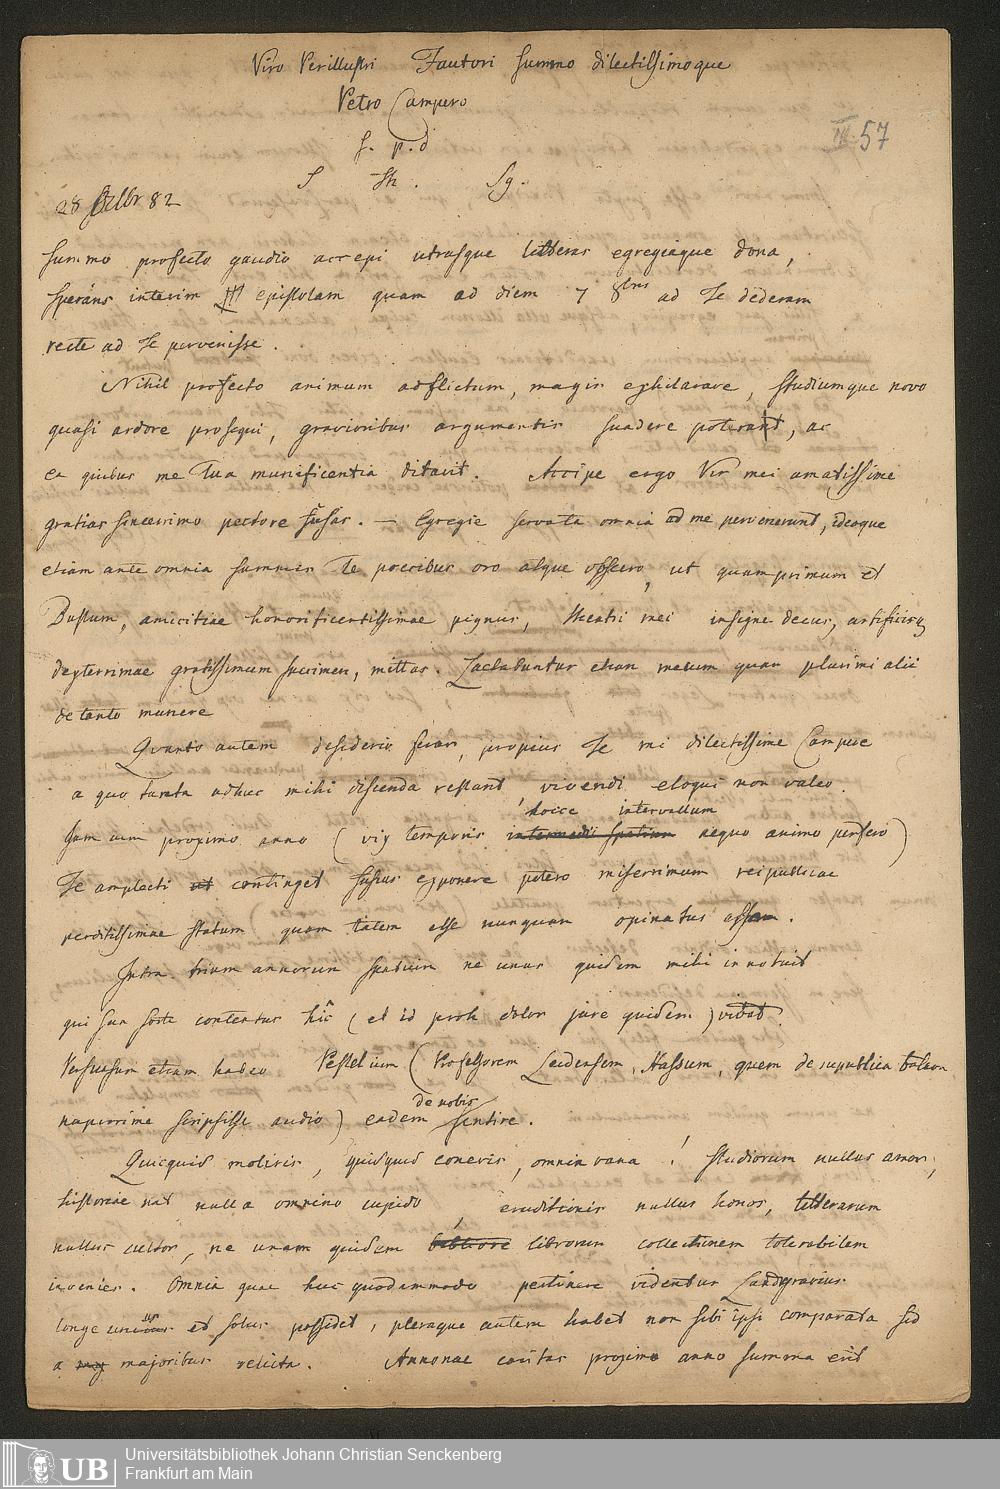 Viro Perillustri Fautori summo dilectissimoque
Petro Campero
s. p. d
S Th. Sg.
III 57
28 Octbr 82
Summo profecto gaudio accepi utrasque litteras egregiaque dona,
sperans interim III epistolam quam ad diem 7 8bris ad Te dederam
recte ad Te pervenisse.
Nihil profecto animum adflictum, magis exhilarare, studiumque novo
quasi ardore prosequi, gravioribus argumentis suadere poterant, ac
ea quibus me Tua munificentia ditavit. Accipe ergo Vir mei amatissime
gratias sincerrimo pectore fusas. — Egregie servata omnia ad me pervenerunt, ideoque
etiam ante omnia summis Te precibus oro atque obsecro, ut quamprimum et
Bustum, amicitiae honorificentissimae pignus, theatri mei insigne decus, artificisq
dexterrimae gratissimum specimen, mittas. Laetabuntur etiam mecum quam plurimi alii
de tanto munere
Quanto autem desiderio feror, propius Te mi dilectissime Campere
a quo tanta adhuc mihi discenda restant, vivendi eloqui non valeo.
hocce intervallum
Jam cum proximo anno (vix temporis intermedii spatium aequo animo perfero)
Te amplecti ut continget fusius exponere potero miserrimum reipublicae
perditissimae statum quam talem esse nunquam opinatus essem.
Intra trium annorum spatium ne unus quidem mihi innotuit
qui sua sorte contentus hic (et id proh dolor jure quidem) vivat.
Persuasum etiam habeo Pestelium (Professorem Leidensem, Hassum, quem de republica batava
de nobis
nuperrime scripsisse audio) eadem sentire.
Quicquid moliris, quidquid coneris, omnia vana! Studiorum nullus amor,
historiae nat nulla omnino cupido, eruditionis nullus honos, litterarum
nullus cultor, ne unam quidem librorum collectionem tolerabilem
invenies. Omnia quae huc quodammodo pertinere videntur Landgravius
longe unicus et solus possidet, pleraque autem habet non sibi ipsi comparata sed
a maj majoribus relicta. Annonae caritas proximo anno summa erit
Universitätsbibliothek Johann Christian Senckenberg
UB Frankfurt am Main